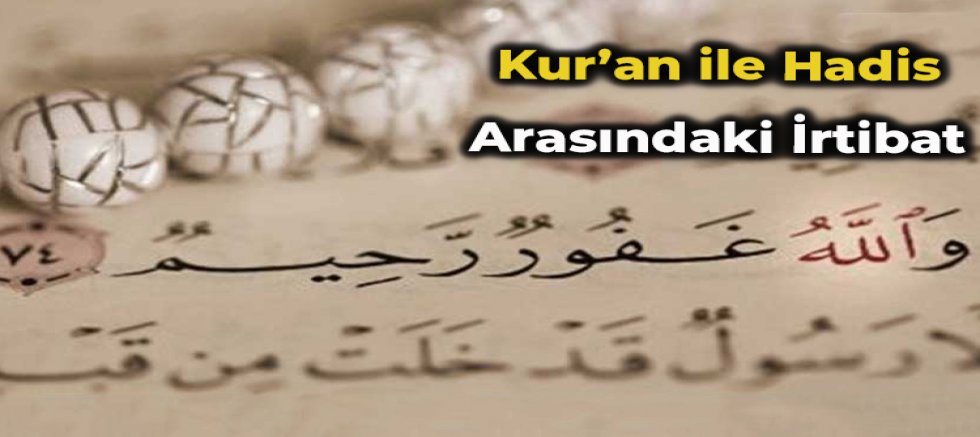 Kur’an ile Hadis
Arasındaki İrtibat
وَٱللَّهُ غَفُورٌ رَّحِيمٌ ٧٤
رَسُولٌ قَدْ خَلَتْ مِن